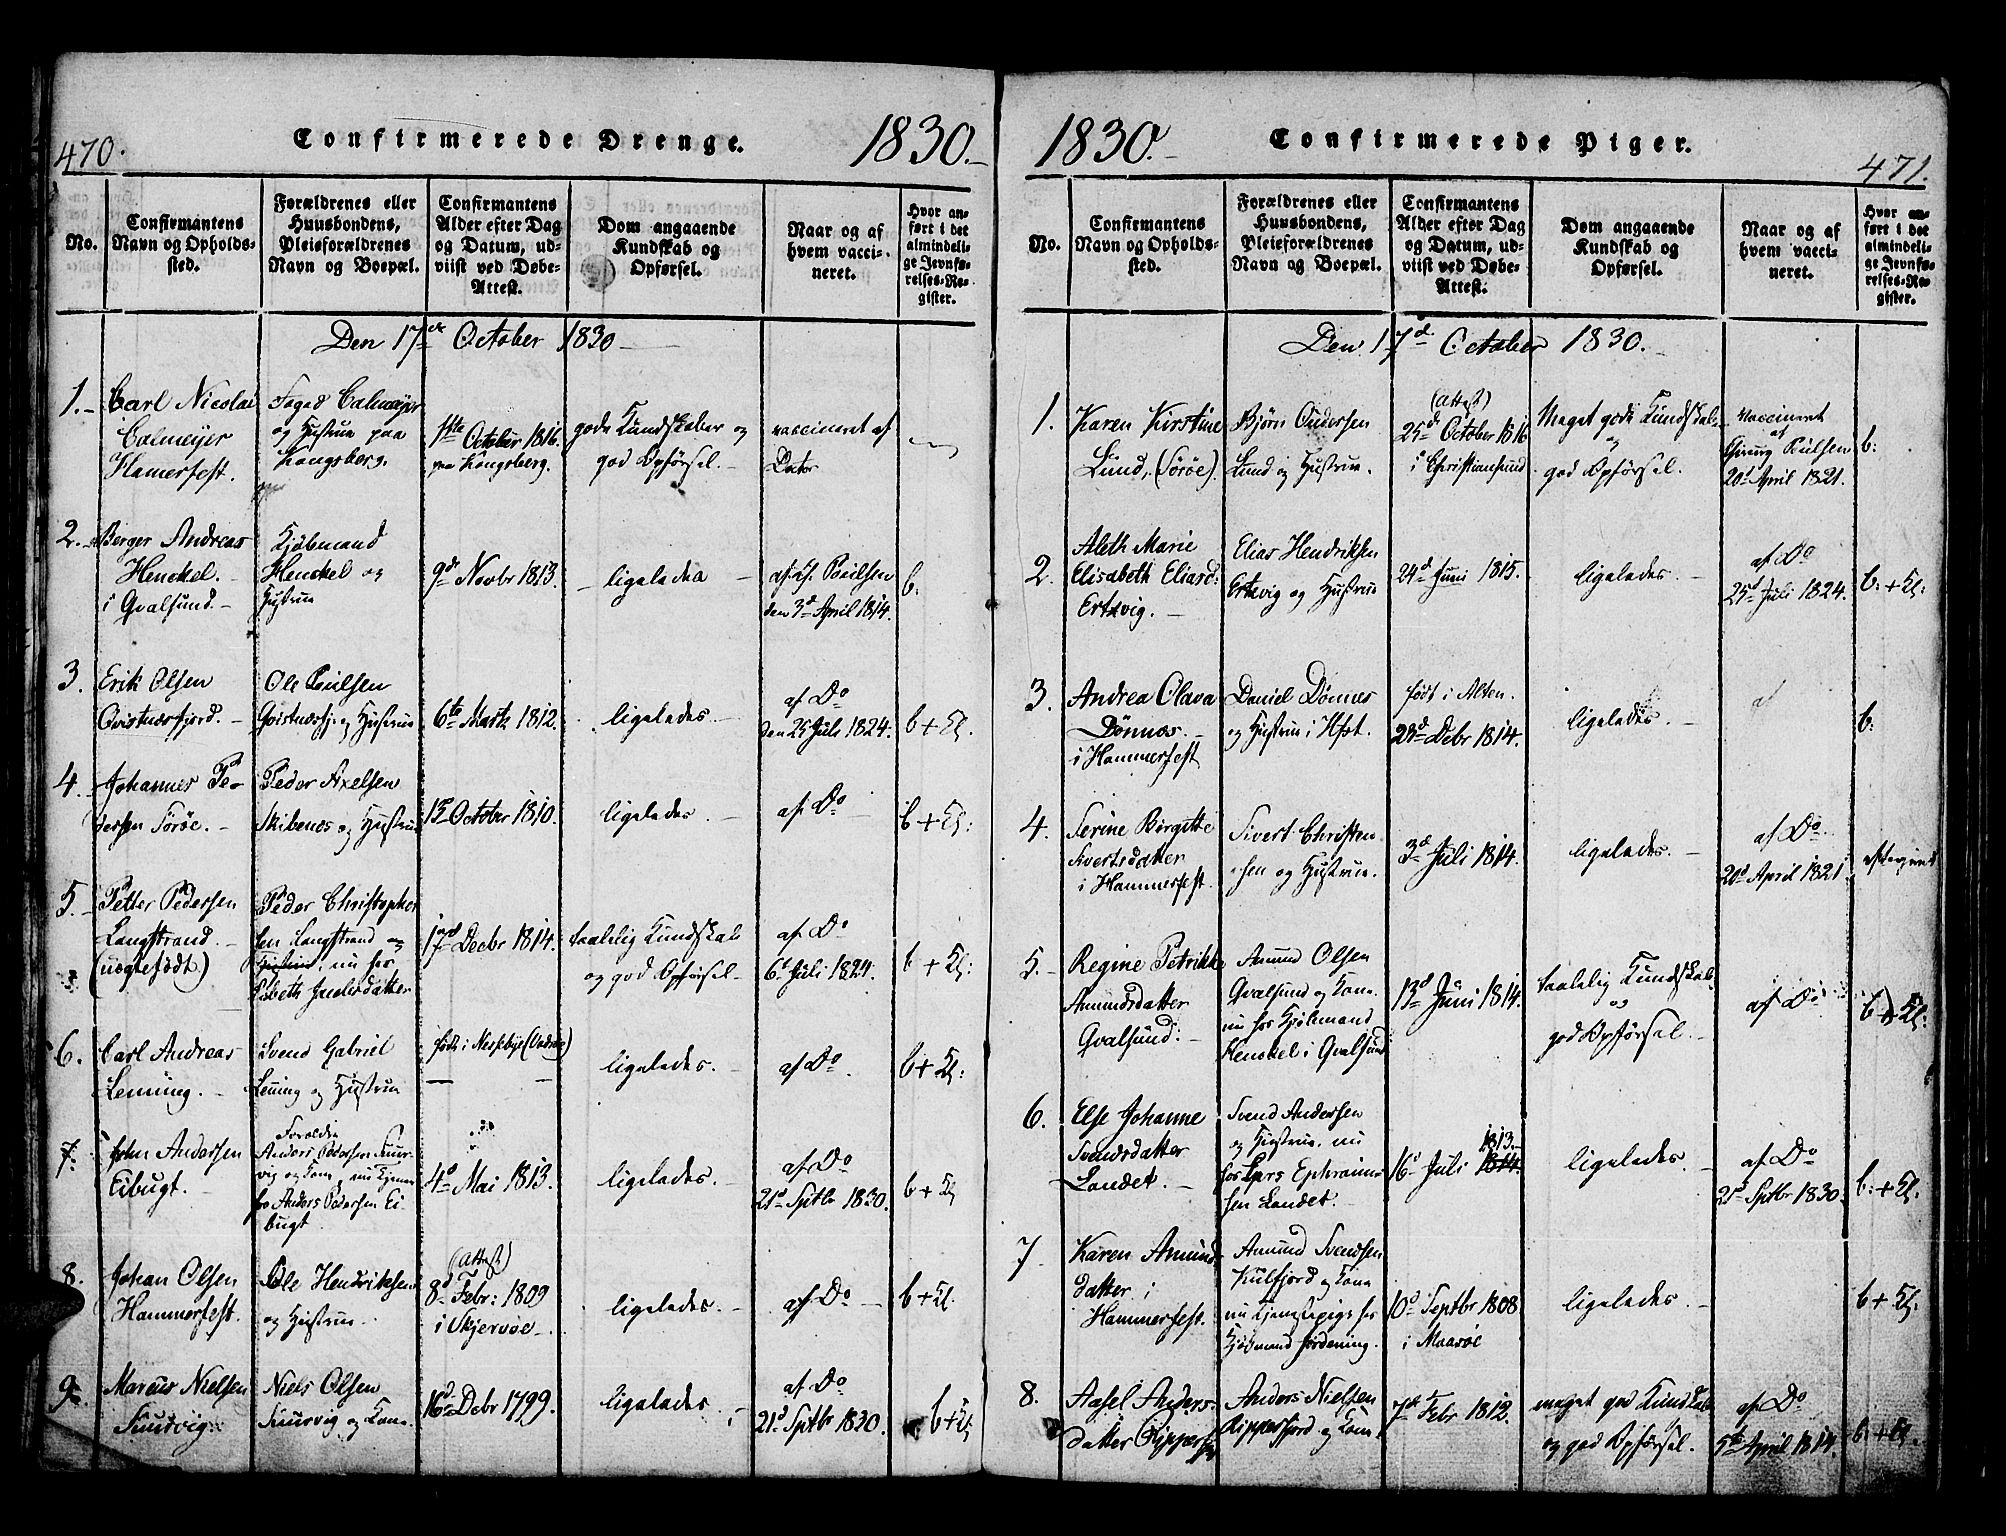 470.
Confirmerede Drenge.
1830.
No.
Confirmantens
Navn og Opholds-
sted.
Forældrenes eller
Huusbondens,
Pleieforældrenes
Navn og Boepæl.
Confirmantens
Alder efter Dag
og Datum, ud-
viist ved Døbe-
Attest.
Dom angaaende
Kundskab og
Opførsel.
Naar og af
hvem vacci-
neret.
Hvor an-
ført i det
almindeli-
ge Jevnfø-
relses-Re-
gister.
Den 17de October 1830
1.
Carl Nicolai
Calmeyer
Hamerfest.
Foged Calmeyer
og Hustrue paa
Kongsberg.
1ste October 1816.
paa Kongsberg.
gode Kundskaber og
god Opførsel.
vaccineret af
2.
Berger Andreas
Henckel.
i Qvalsund.
Kjøbmand
Henckel og
Hustrue
9d Novbr 1813.
ligeledes
af Poulsen
den 3d April 1814.
b:
3.
Erik Olsen
Qvistnæsfjord.
Ole Poulsen
og Hustrue
6te Marts 1812.
ligeledes.
af Do
den 25 Juli 1824.
b +
4.
Johannes Pe-
dersen Sørøe.
Peder Axelsen
Skibenes og Hustrue
15 October 1810.
ligeledes.
af Do
b +
5.
Petter Pedersen
Langstrand.
(uægtefødt.)
Peder Christopher
sen Langstrand og
Hustrue, nu hos
17d Decbr 1814.
taalelig Kundskab
og god Opførsel
af Do
6d Juli 1824.
b +
6.
Carl Andreas
Lenning.
Svend Gabriel
Lening og Hustrue
født i
ligeledes.
af Do.
b +
7.
John Andersen
Eibugt.
Forældre
Anders Pedersen
vig og Kone, nu tjener
for Anders Pedersen Ei-
bugt.
4d Mai 1813.
ligeledes.
af Do
21d Sptbr 1830.
b +
8.
Johan Olsen
Hammerfest.
Ole Hendriksen
og Hustrue
(Attest)
8d Febr: 1809
i Skjervøe
ligeledes.
af Do
b +
9.
Marcus Nielsen
Niels Olsen
og Kone
16d Debr 1799.
ligeledes.
af Do
21d Sptbr 1830.
b +
1830.
Confirmerede Piger.
471.
No.
Confirmantens
Navn og Opholds-
sted.
Forældrenes eller
Huusbondens,
Pleieforældrenes
Navn og Boepæl.
Confirmantens
Alder efter Dag
og Datum, ud-
viist ved Døbe-
Attest.
Dom angaaende
Kundskab og
Opførsel.
Naar og af
hvem vacci-
neret.
Hvor an-
ført i det
almindeli-
ge Jevnfø-
relses-Re-
gister.
Den 17d October 1830.
1.
Karen Kirstine
Lund, (Sørøe).
Bjørn Andersen
Lund og Hustrue.
(Attest)
25d October 1816
i Christiansund
Meget gode Kundskab
og
god Opførsel.
vaccineret
af
Poulsen
20d April 1821.
b:
2.
Aleth Marie
Elisabeth Eliasd:
Ertzvig.
Elias Hendriksen
Ertzvig og Hustrue
24d Juni 1815.
ligeledes.
af Do
25d Juli 1824.
b: +
3.
Andrea Olava
Dønnes.
i Hammerfest
Daniel Dønnes
og Hustrue i Hfst.
født i Alten.
23d Debr 1814.
ligeledes.
af
b:
4.
Serine Birgitte
Sivertsdatter
i Hammerfest.
Sivert Christen-
sen og Hustrue.
3d Juli 1814.
ligeledes.
af Do.
20d April 1821.
5.
Regine Petrikke
Amundsdatter
Qvalsund.
Amund Olsen
Qvalsund og Kone.
nu hos Kjøbmand
Henckel i Qvalsund
13d Juni 1814.
taalelig Kundskab
og
god Opførsel.
af Do
b +
6.
Else Johanne
Svendsdatter
Landet.
Svend Andersen
og Hustrue. nu
hos Lars Ephraim-
sen Landet.
16d Juli 1814. 1813.
ligeledes.
af Do
21d Sptbr 1830.
b: +
7
Karen Amund-
datter i
Hammerfest.
Amund Svendsen
Kulfjord og Kone
nu Tjenestepige hos
Kjøbmand
10d Septbr 1808
i Maasøe
ligeledes.
b +
8.
Anders-
datter
Anders Nielsen
Ripperfjord og Kone.
7de Febr 1812.
meget god Kundskab
og god Opførsel.
af Do
5te April 1814.
b: +